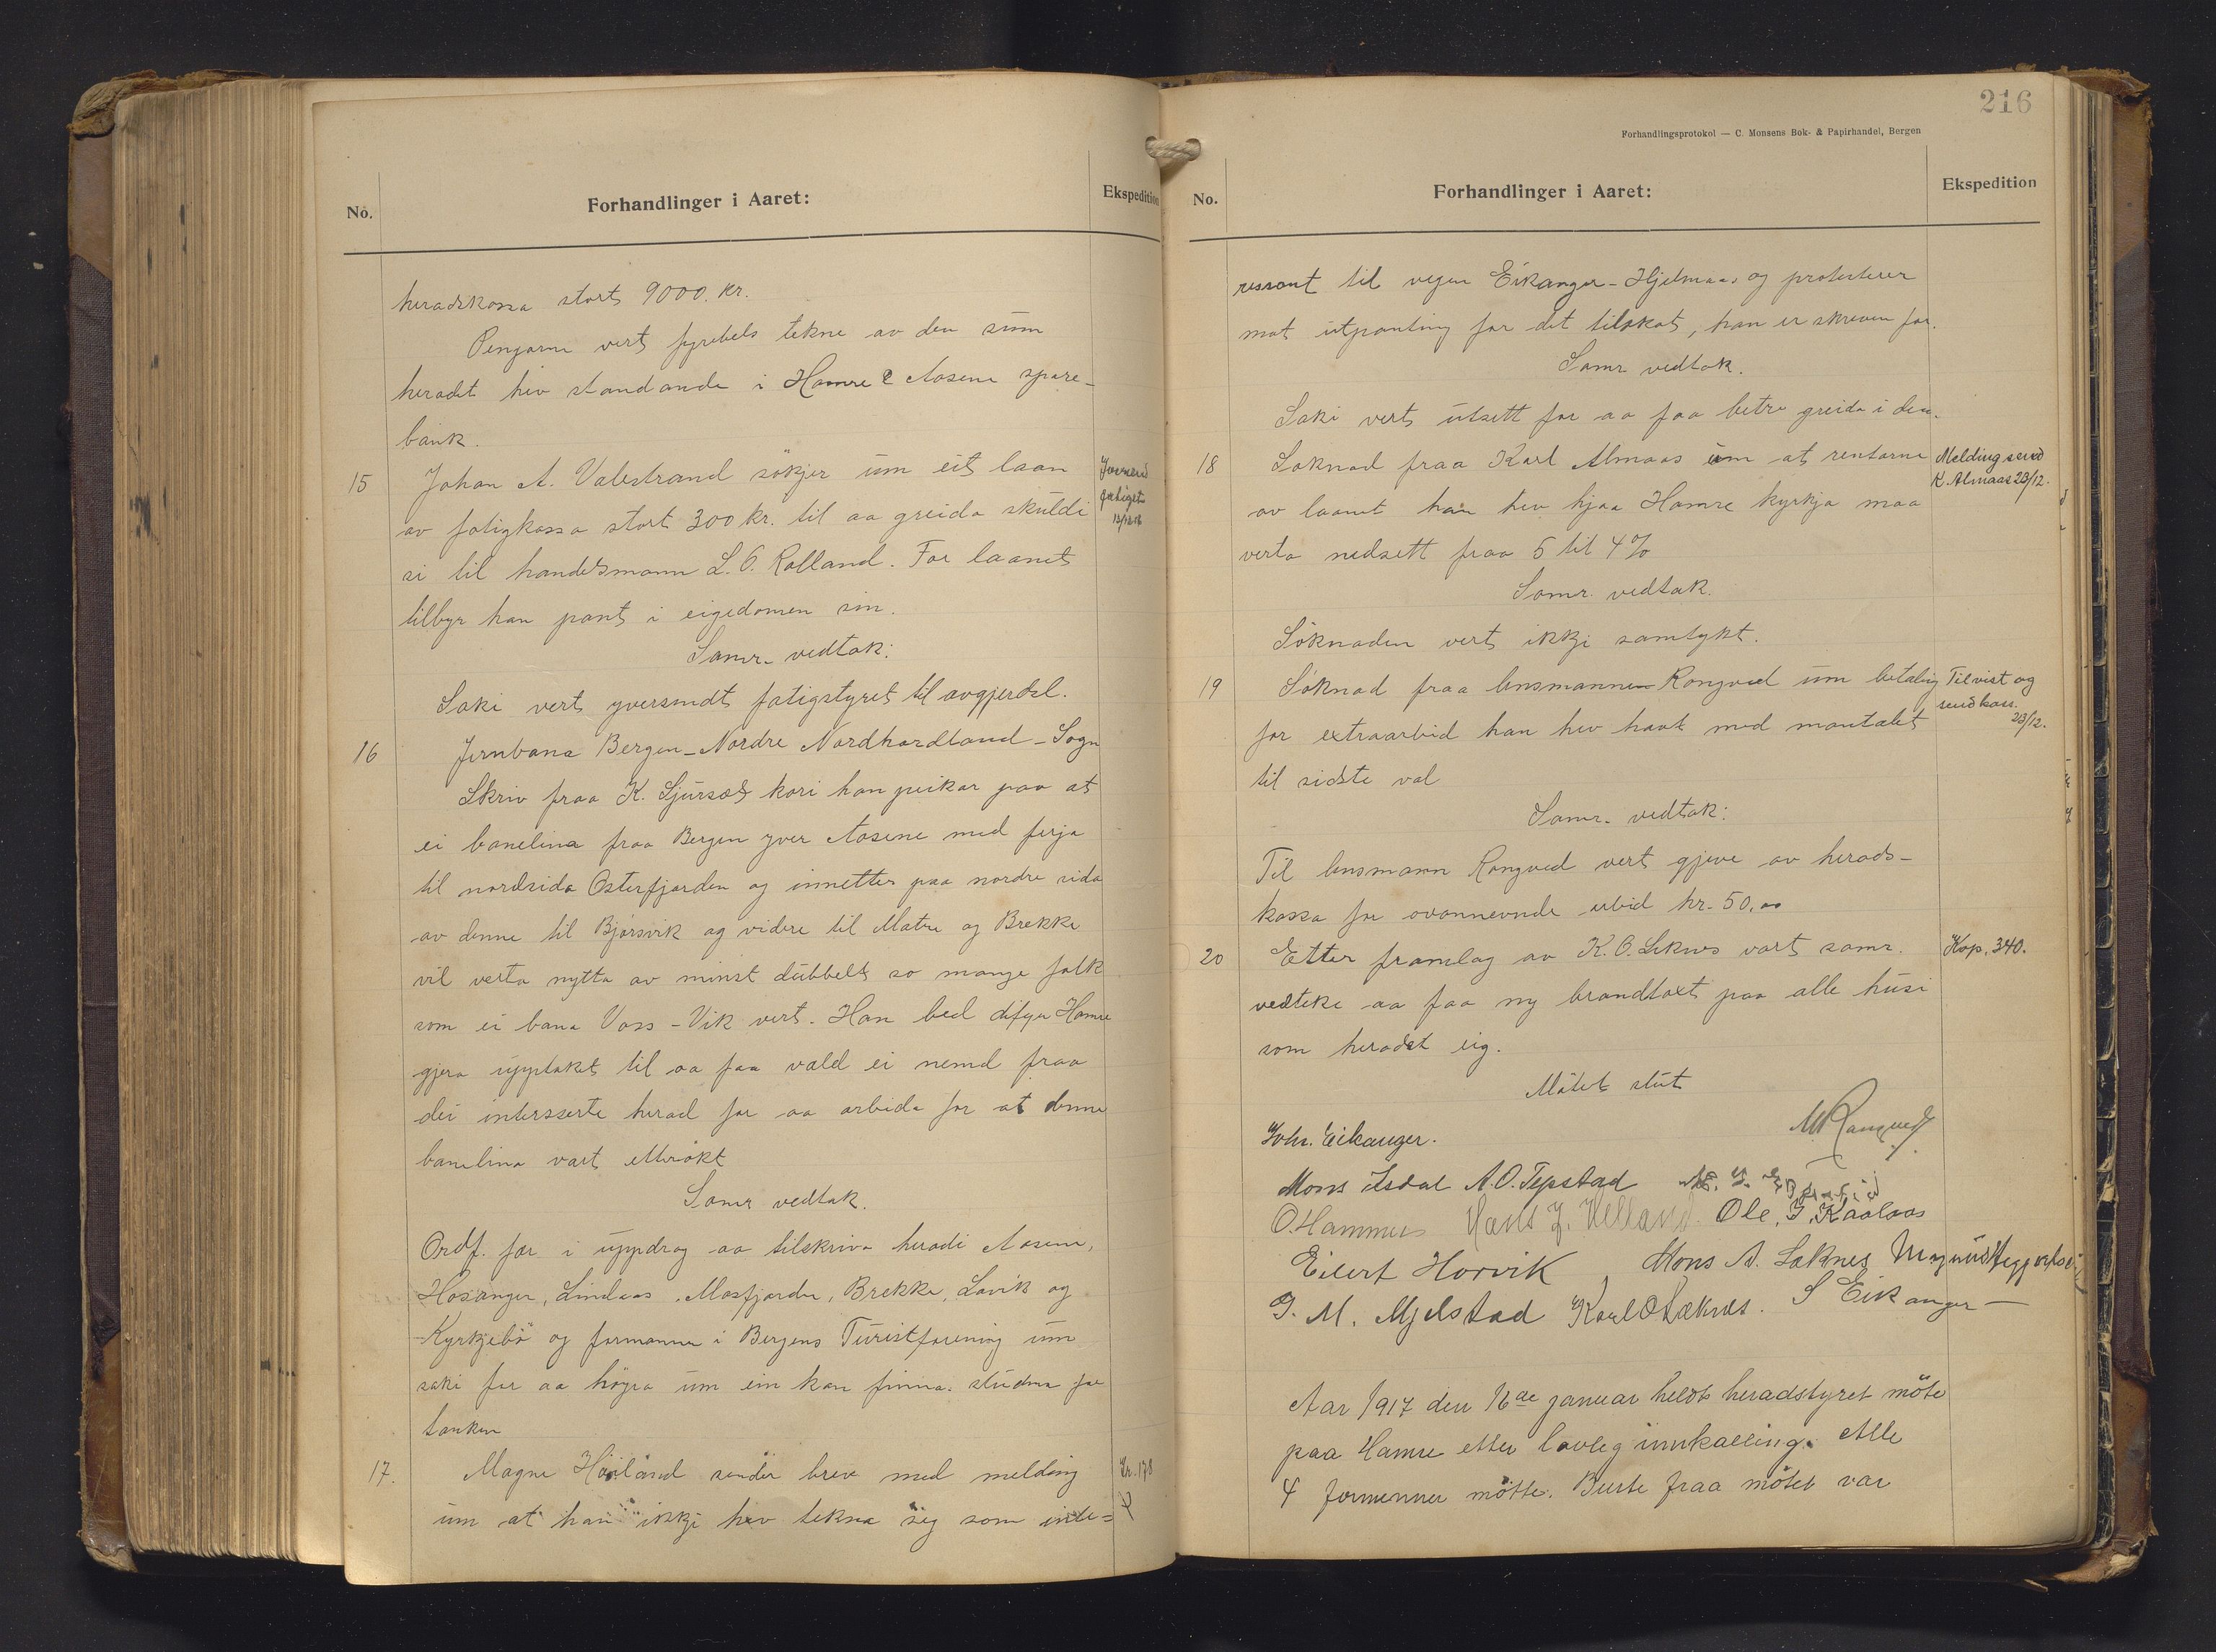 No.
Forhandlinger i Aaret:
Ekspedition
heradskassa stort 9000. kr.
Pengarne vert fyrebels tekne av den sum
heradet hev standande i Hamre & Aasene spare-
bank.
15 Johan A. Valestrand søkjer um eit laan
av fatigkassa stort 300 kr. til aa greida skuldi
si til handelsmann L. O. Rolland. For laanet
tilbyr han pant i eigedomen sin.
Samr. vedtak:
Saki vert yversendt fatigstyret til avgjerdsl.
fatigst.
13/12 16
16 Jernbana Bergen-Nordre Nordhordland-Sogn
Skriv fraa K. Sjursæt kori han peikar paa at
ei banelina fraa Bergen yver Aasene med ferja
til nordsida Osterfjorden og innetter paa nordre sida
av denne til Bjørsvik og vidare til Matre og Brekke
vil verta nytta av minst dubbelt so mange folk
som ei bana Voss-Vik vert. Han bed difyr Hamre
gjera upptaket til aa faa vald ei nemd fraa
dei intersserte herad for aa arbida for at denne
banelina vart ettersøkt
Samr vedtak.
Ordf. fær i uppdrag aa tilskriva heradi Aasene,
Hosanger, Lindaas, Masfjorden, Brekke, Lavik og
Kyrkjebø og formannen i Bergens Turistforening um
saki for aa høyra um ein kan finna studna for
tanken
17. Magne Høiland sender brev med melding
um at han ikkji hev tekna seg som inte=
Kr. 178
216
Forhandlingsprotokol — C. Monsens Bok- & Papirhandel, Bergen
No.
Forhandlinger i Aaret:
Ekspedition
ressent til vegen Eikanger-Hjelmaas og protesterer
mot utpanting for det tilskot, han er skreven for.
Samr vedtak.
Saki vert utsett for aa faa betre greida i den.
18 Søknad fraa Karl Almaas um at rentorne
av laanet han hev hjaa Hamre kyrkja maa
verta nedsett fraa 5 til 4%
Melding send
K. Almaas 23/12.
Samr. vedtak.
Søknaden vert ikkji samtykt.
19 Søknad fraa lensmannen Rongved um betaling
for extraarbid han hev havt med mantalet
til sidste val
Tilvist og
send kass.
23/12.
Samr. vedtak:
Til lensmann Rongved vert gjeve av herads-
kassa for ovannevnde arbid kr. 50,00
20 Etter framlag av K. O. Leknes vart samr.
vedteke aa faa ny brandtaxt paa alle husi
som heradet eig.
Kop. 340.
Møtet slut
Joh. Eikanger.
M Rongved
Mons Isdal A. O. Tepstad
O. Hammer Hans J. Helland. Ole. J. Kaalaas
Eilert Horvik, Mons A. Leknes
J. M. Mjelstad Karl O Leknes. S Eikanger
Aar 1917 den 16de januar heldt heradstyret møte
paa Hamre etter lovleg innkalling. Alle
4 formenner møtte. Burte fraa møtet var